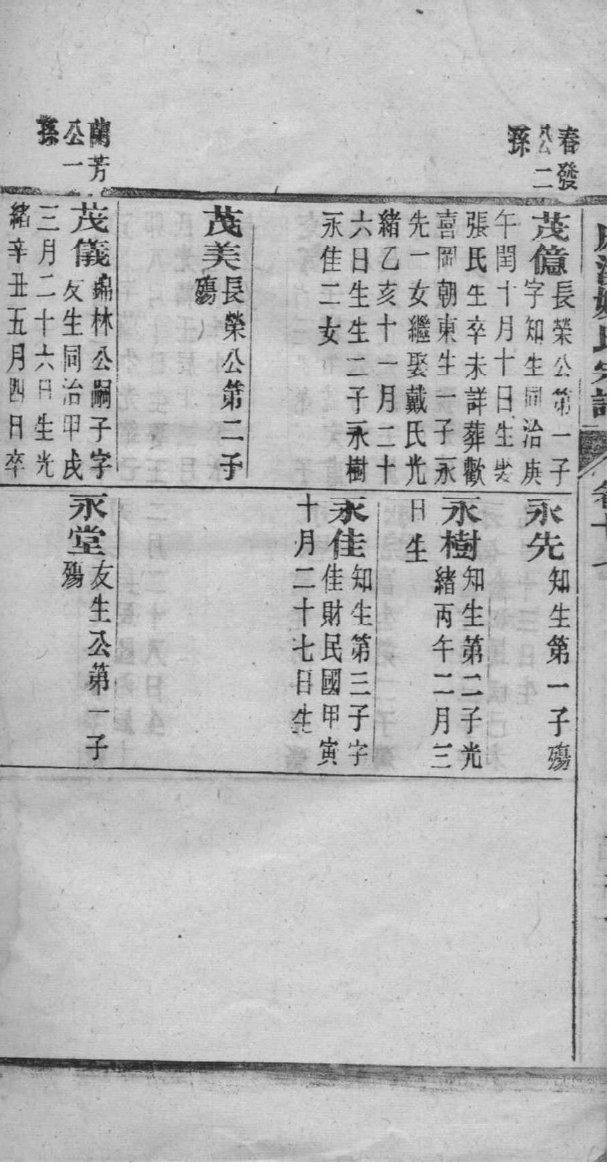 春發
公二
孫
茂億長榮公第一子
字知生同治庚
午閏十月十日生娶
張氏生卒未詳葬歡
喜岡朝東生一子永
先一女繼娶戴氏光
緒乙亥十一月二十
六日生生二子永樹
永佳二女
茂美長榮公第二子
殤
蘭芳
公一
孫
茂儀錦林公嗣子字
友生同治甲戌
三月二十六日生光
緒辛丑五月四日卒
永先知生第一子殤
永樹知生第二子光
緒丙午二月三
日生
永佳知生第三子字
佳財民國甲寅
十月二十七日生
永堂友生公第一子
殤